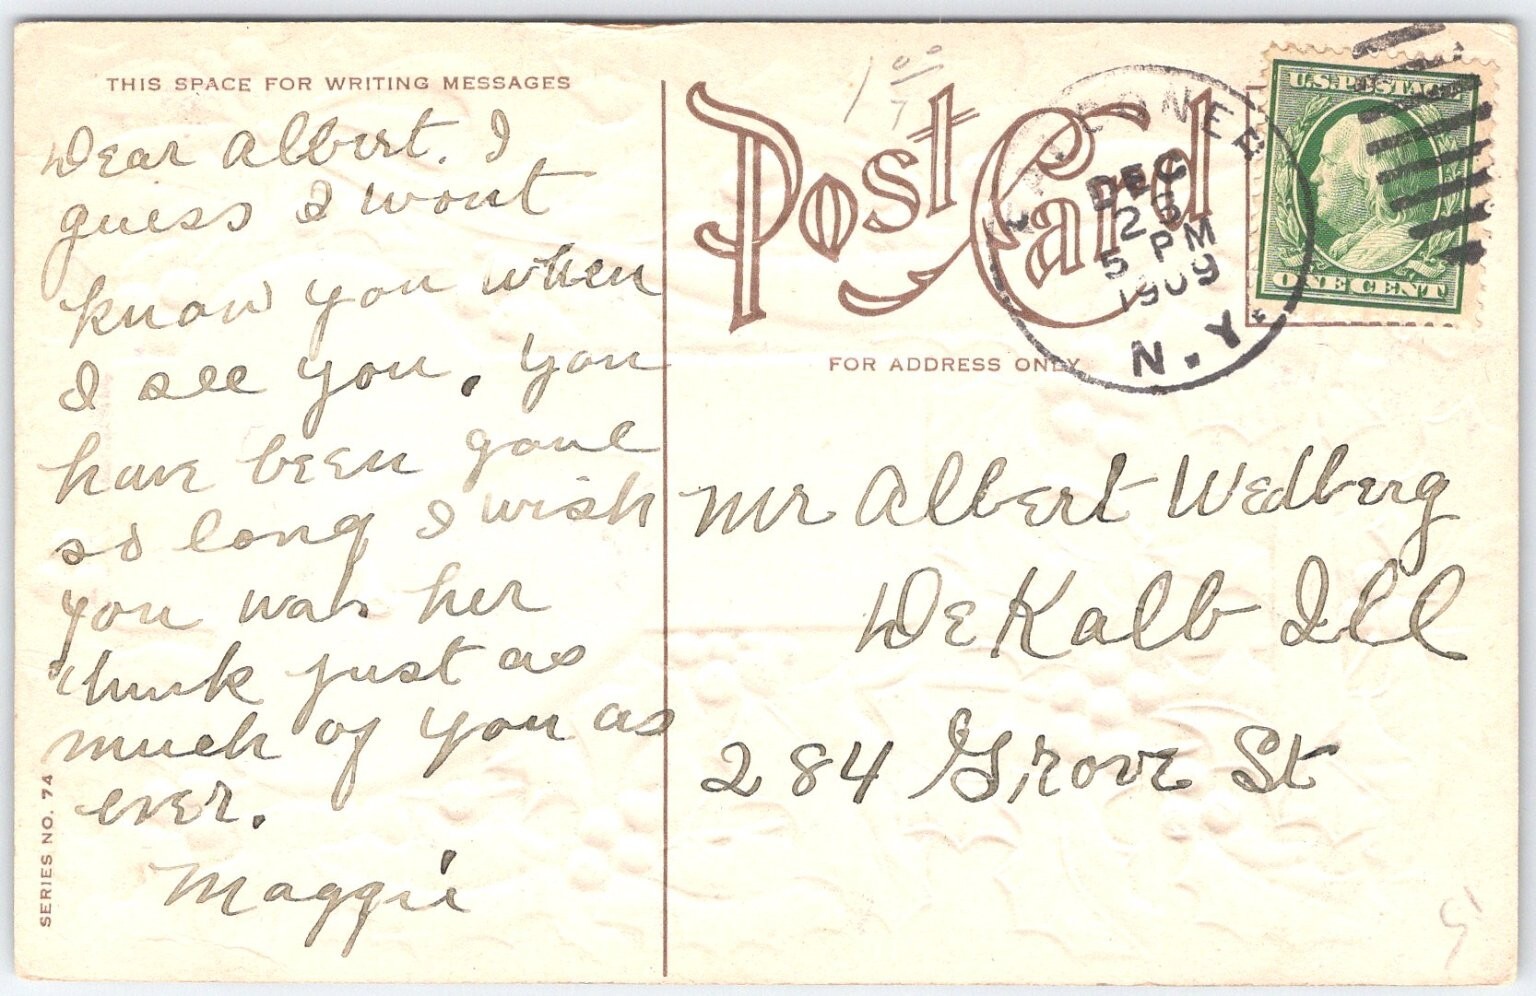 THIS SPACE FOR WRITING MESSAGES
Dear Albert. I
guess I wont
know you when
I see you. you
have been gone
so long I wish
you was her
think just as
much of you as
ever.
Maggie
SERIES NO. 74
Post Card
FOR ADDRESS ONLY
DEC
26
5 PM
1909
N.Y.
U.S. POSTAGE
ONE CENT
Mr Albert Wedberg
DeKalb Ill
284 Grove St